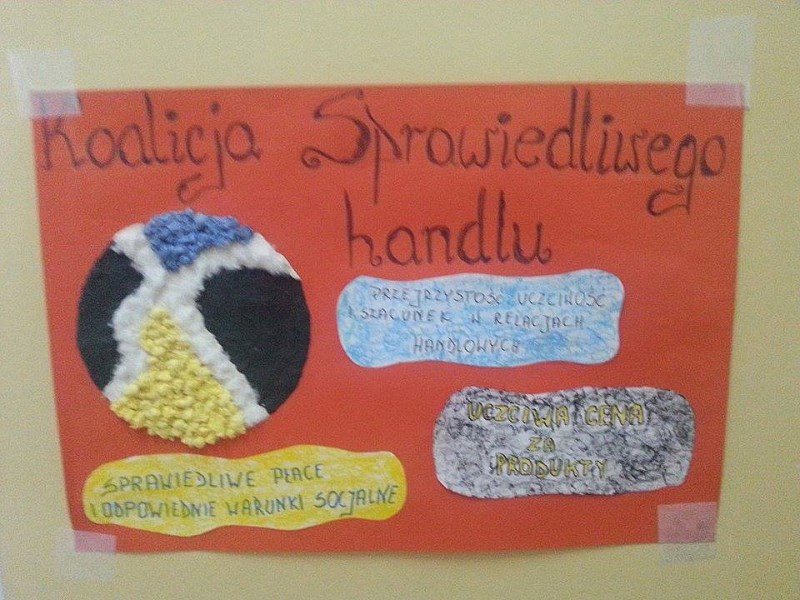 Koalicja Sprawiedliwego
handlu
PRZEJRZYSTOŚĆ UCZCIWOŚĆ
I SZACUNEK W RELACJACH
HANDLOWYCH
UCZCIWA CENA
ZA
PRODUKTY
SPRAWIEDLIWE PŁACE
I ODPOWIEDNIE WARUNKI SOCJALNE